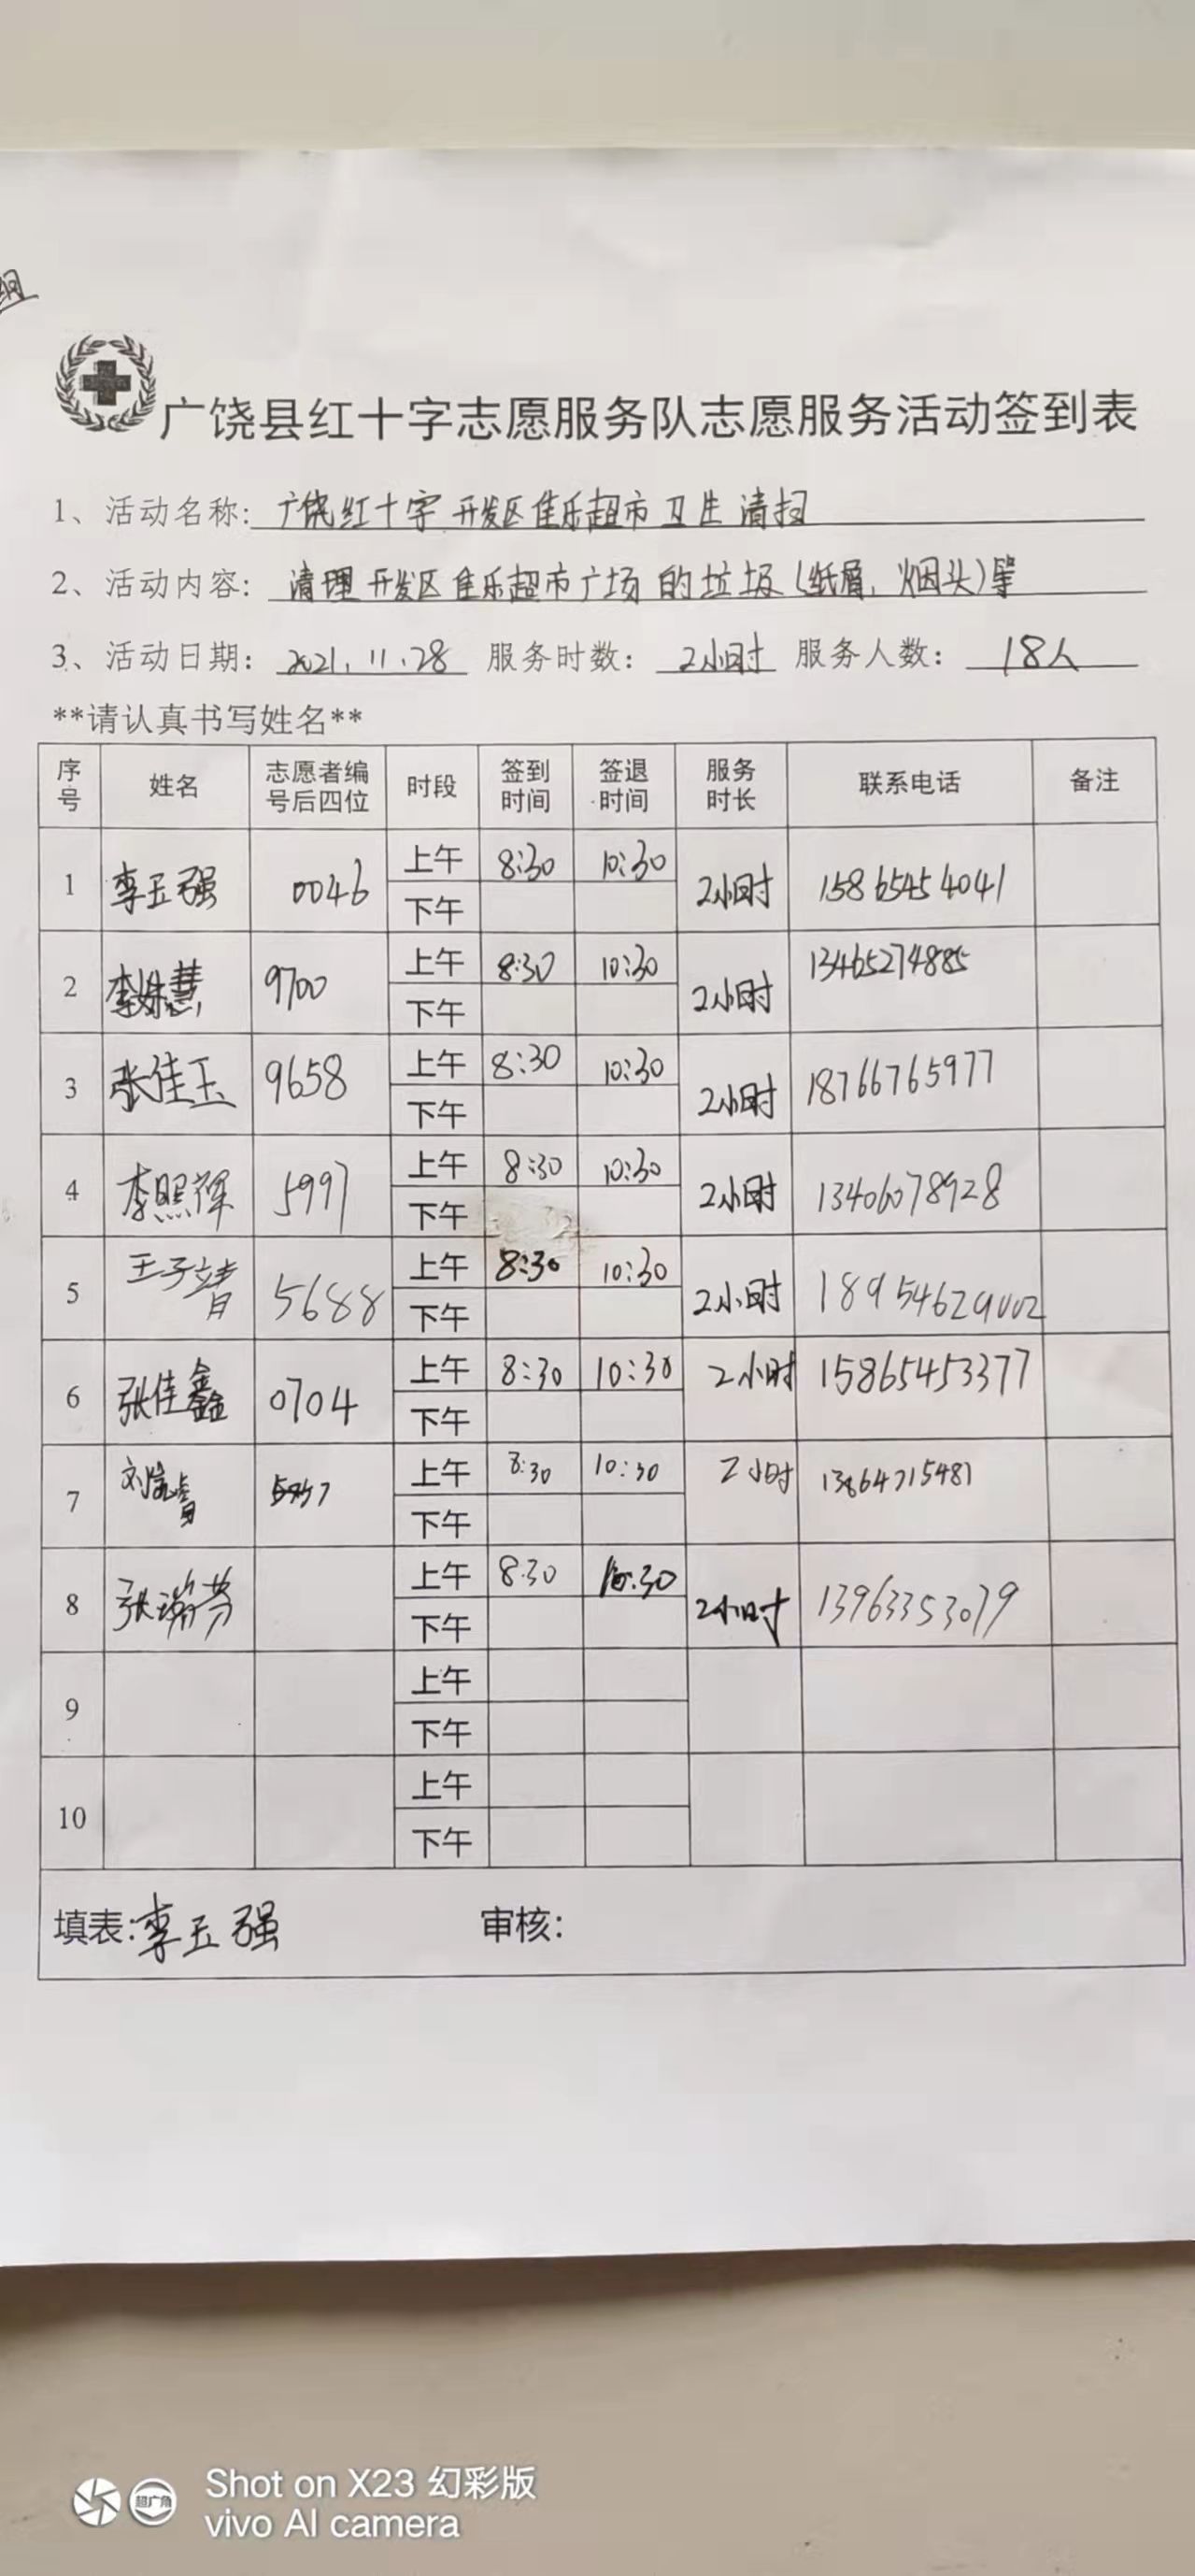 组
广饶县红十字志愿服务队志愿服务活动签到表
1、活动名称: 广饶红十字开发区佳乐超市卫生清扫
2、活动内容: 清理开发区佳乐超市广场的垃圾(纸屑,烟头)等
3、活动日期: 2021.11.28 服务时数: 2小时 服务人数: 18人
**请认真书写姓名**
序号 姓名 志愿者编号后四位 时段 签到时间 签退时间 服务时长 联系电话 备注
1 李五强 0046 上午 8:30 10:30 2小时 15865454041
下午
2 李姝慧 9700 上午 8:30 10:30 2小时 13465274885
下午
3 张佳玉 9658 上午 8:30 10:30 2小时 18766765977
下午
4 李照辉 5997 上午 8:30 10:30 2小时 13406078928
下午
5 王子靖 5688 上午 8:30 10:30 2小时 18954629002
下午
6 张佳鑫 0704 上午 8:30 10:30 2小时 15865453377
下午
7 刘 上午 8:30 10:30 2小时 13864715481
下午
8 张瑞芬 上午 8:30 10:30 2小时 13963353079
下午
9 上午
下午
10 上午
下午
填表: 李五强 审核:
超广角
Shot on X23 幻彩版
vivo AI camera